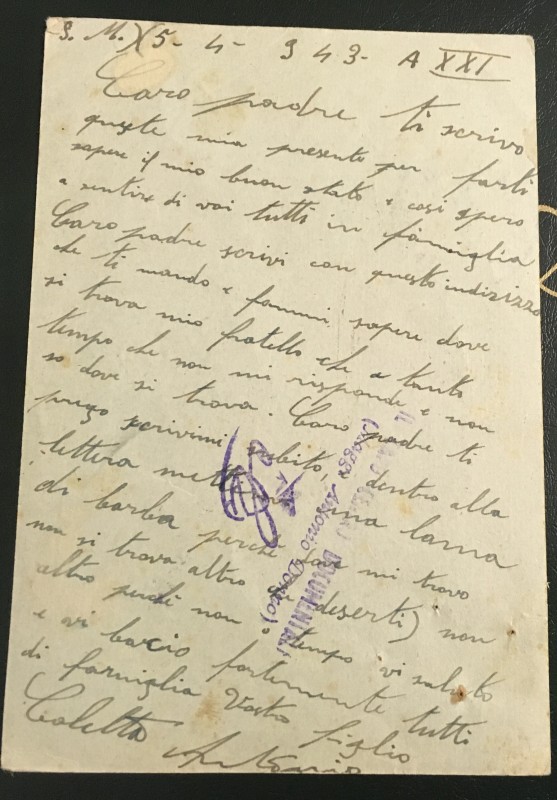 S. M. 15- 4- 943- A XXI
Caro padre ti scrivo
queste mia presente per farti
sapere il mio buon stato e cosi spero
a sentire di voi tutti in famiglia
Caro padre scrivi con questo indirizzo
che ti mando e fammi sapere dove
si trova mio fratello che a tanto
tempo che non mi risponde e non
so dove si trova. Caro padre ti
prego scrivimi subito, dentro alla
lettera una lama
di barba perche dove mi trovo
non si trova altro che deserti) non
altro perche non o tempo vi saluto
e vi bacio fortemente tutti
di famiglia Vostro figlio
Coletta Antonio
DOCUMENTI
Antonio